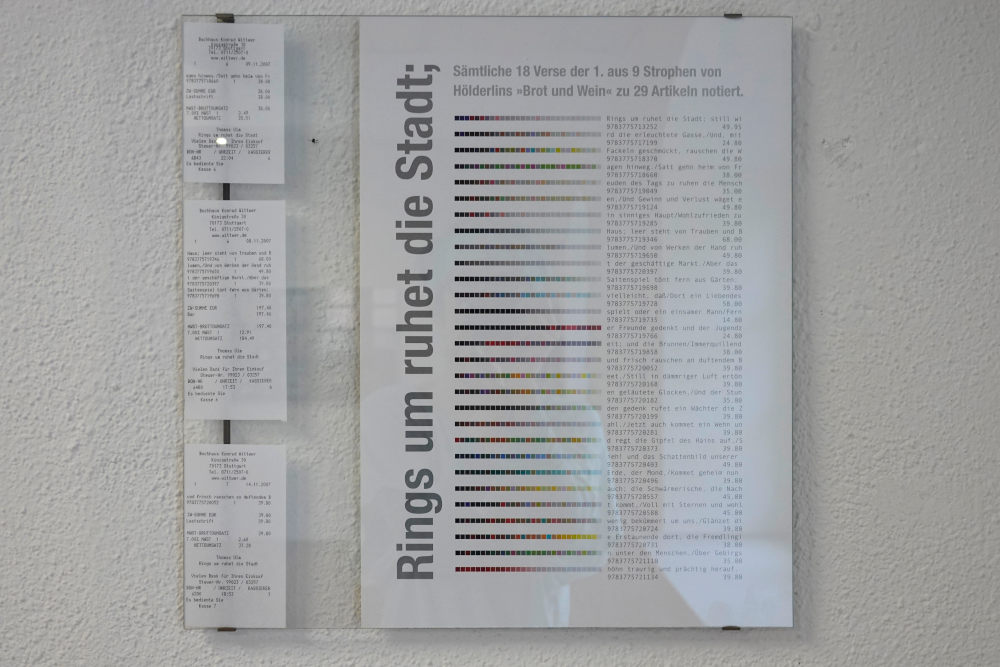 Buchhaus Konrad Wittwer
Königstraße 30
70173 Stuttgart
Tel. 0711/2507-0
www.wittwer.de
09.11.2007
agen hinweg./Satt gehn heim von Fr
9783775718660 1 38.00
ZW-SUMME EUR 38.00
Lastschrift 38.00
MWST-BRUTTOUMSATZ 38.00
7.00% MWST 1 2.49
NETTOUMSATZ 35.51
Thomas Ulm
Rings um ruhet die Stadt
Vielen Dank für Ihren Einkauf
Steuer-Nr. 99023 / 03257
BON-NR / UHRZEIT / KASSIERER
Es bediente Sie
Kasse 6
Buchhaus Konrad Wittwer
Königstraße 30
70173 Stuttgart
Tel. 0711/2507-0
www.wittwer.de
08.11.2007
Haus; leer steht von Trauben und B
9783775719346 1 68.00
lumen,/Und von Werken der Hand ruh
9783775719650 1 49.80
t der geschäftige Markt./Aber das
9783775720397 1 39.80
Saitenspiel tönt fern aus Gärten;
9783775719698 1 39.80
ZW-SUMME EUR 197.40
Bar 197.40
MWST-BRUTTOUMSATZ 197.40
7.00% MWST 1 12.91
NETTOUMSATZ 184.49
Thomas Ulm
Rings um ruhet die Stadt
Vielen Dank für Ihren Einkauf
Steuer-Nr. 99023 / 03257
BON-NR / UHRZEIT / KASSIERER
Es bediente Sie
Kasse 6
Buchhaus Konrad Wittwer
Königstraße 30
70173 Stuttgart
Tel. 0711/2507-0
www.wittwer.de
14.11.2007
und frisch rauschen an duftendem B
9783775720052 1 39.80
ZW-SUMME EUR 39.80
Lastschrift 39.80
MWST-BRUTTOUMSATZ 39.80
7.00% MWST 1 2.60
NETTOUMSATZ 37.20
Thomas Ulm
Rings um ruhet die Stadt
Vielen Dank für Ihren Einkauf
Steuer-Nr. 99023 / 03257
BON-NR / UHRZEIT / KASSIERER
Es bediente Sie
Kasse 7
Rings um ruhet die Stadt;
Sämtliche 18 Verse der 1. aus 9 Strophen von
Hölderlins »Brot und Wein« zu 29 Artikeln notiert.
Rings um ruhet die Stadt; still wi
9783775713252 49.95
rd die erleuchtete Gasse,/Und, mit
9783775717199 24.80
Fackeln geschmückt, rauschen die W
9783775718370 49.80
agen hinweg./Satt gehn heim von Fr
9783775718660 38.00
euden des Tags zu ruhen die Mensch
9783775719049 35.00
en,/Und Gewinn und Verlust wäget e
9783775719124 49.80
in sinniges Haupt/Wohlzufrieden zu
9783775719285 39.80
Haus; leer steht von Trauben und B
9783775719346 68.00
lumen,/Und von Werken der Hand ruh
9783775719650 49.80
t der geschäftige Markt./Aber das
9783775720397 39.80
Saitenspiel tönt fern aus Gärten;
9783775719698 39.80
vielleicht, daß/Dort ein Liebendes
9783775719728 58.00
spielt oder ein einsamer Mann/Fern
9783775719735 14.80
er Freunde gedenkt und der Jugendz
9783775719766 24.80
eit; und die Brunnen/Immerquillend
9783775719858 38.00
und frisch rauschen an duftendem B
9783775720052 39.80
eet./Still in dämmriger Luft ertön
9783775720168 39.80
en geläutete Glocken,/Und der Stun
9783775720182 35.00
den gedenk rufet ein Wächter die Z
9783775720199 39.80
ahl./Jetzt auch kommet ein Wehn un
9783775720281 39.80
d regt die Gipfel des Hains auf,/S
9783775720373 39.80
ieh! und das Schattenbild unserer
9783775720403 49.80
Erde, der Mond,/Kommet geheim nun
9783775720496 39.80
auch; die Schwärmerische, die Nach
9783775720557 45.80
t kommt,/Voll mit Sternen und wohl
9783775720588 45.80
wenig bekümmert um uns,/Glänzt di
9783775720724 39.80
e Erstaunende dort, die Fremdlingi
9783775720731 38.00
n unter den Menschen,/Über Gebirgs
9783775721110 35.00
höhn traurig und prächtig herauf.
9783775721134 39.80